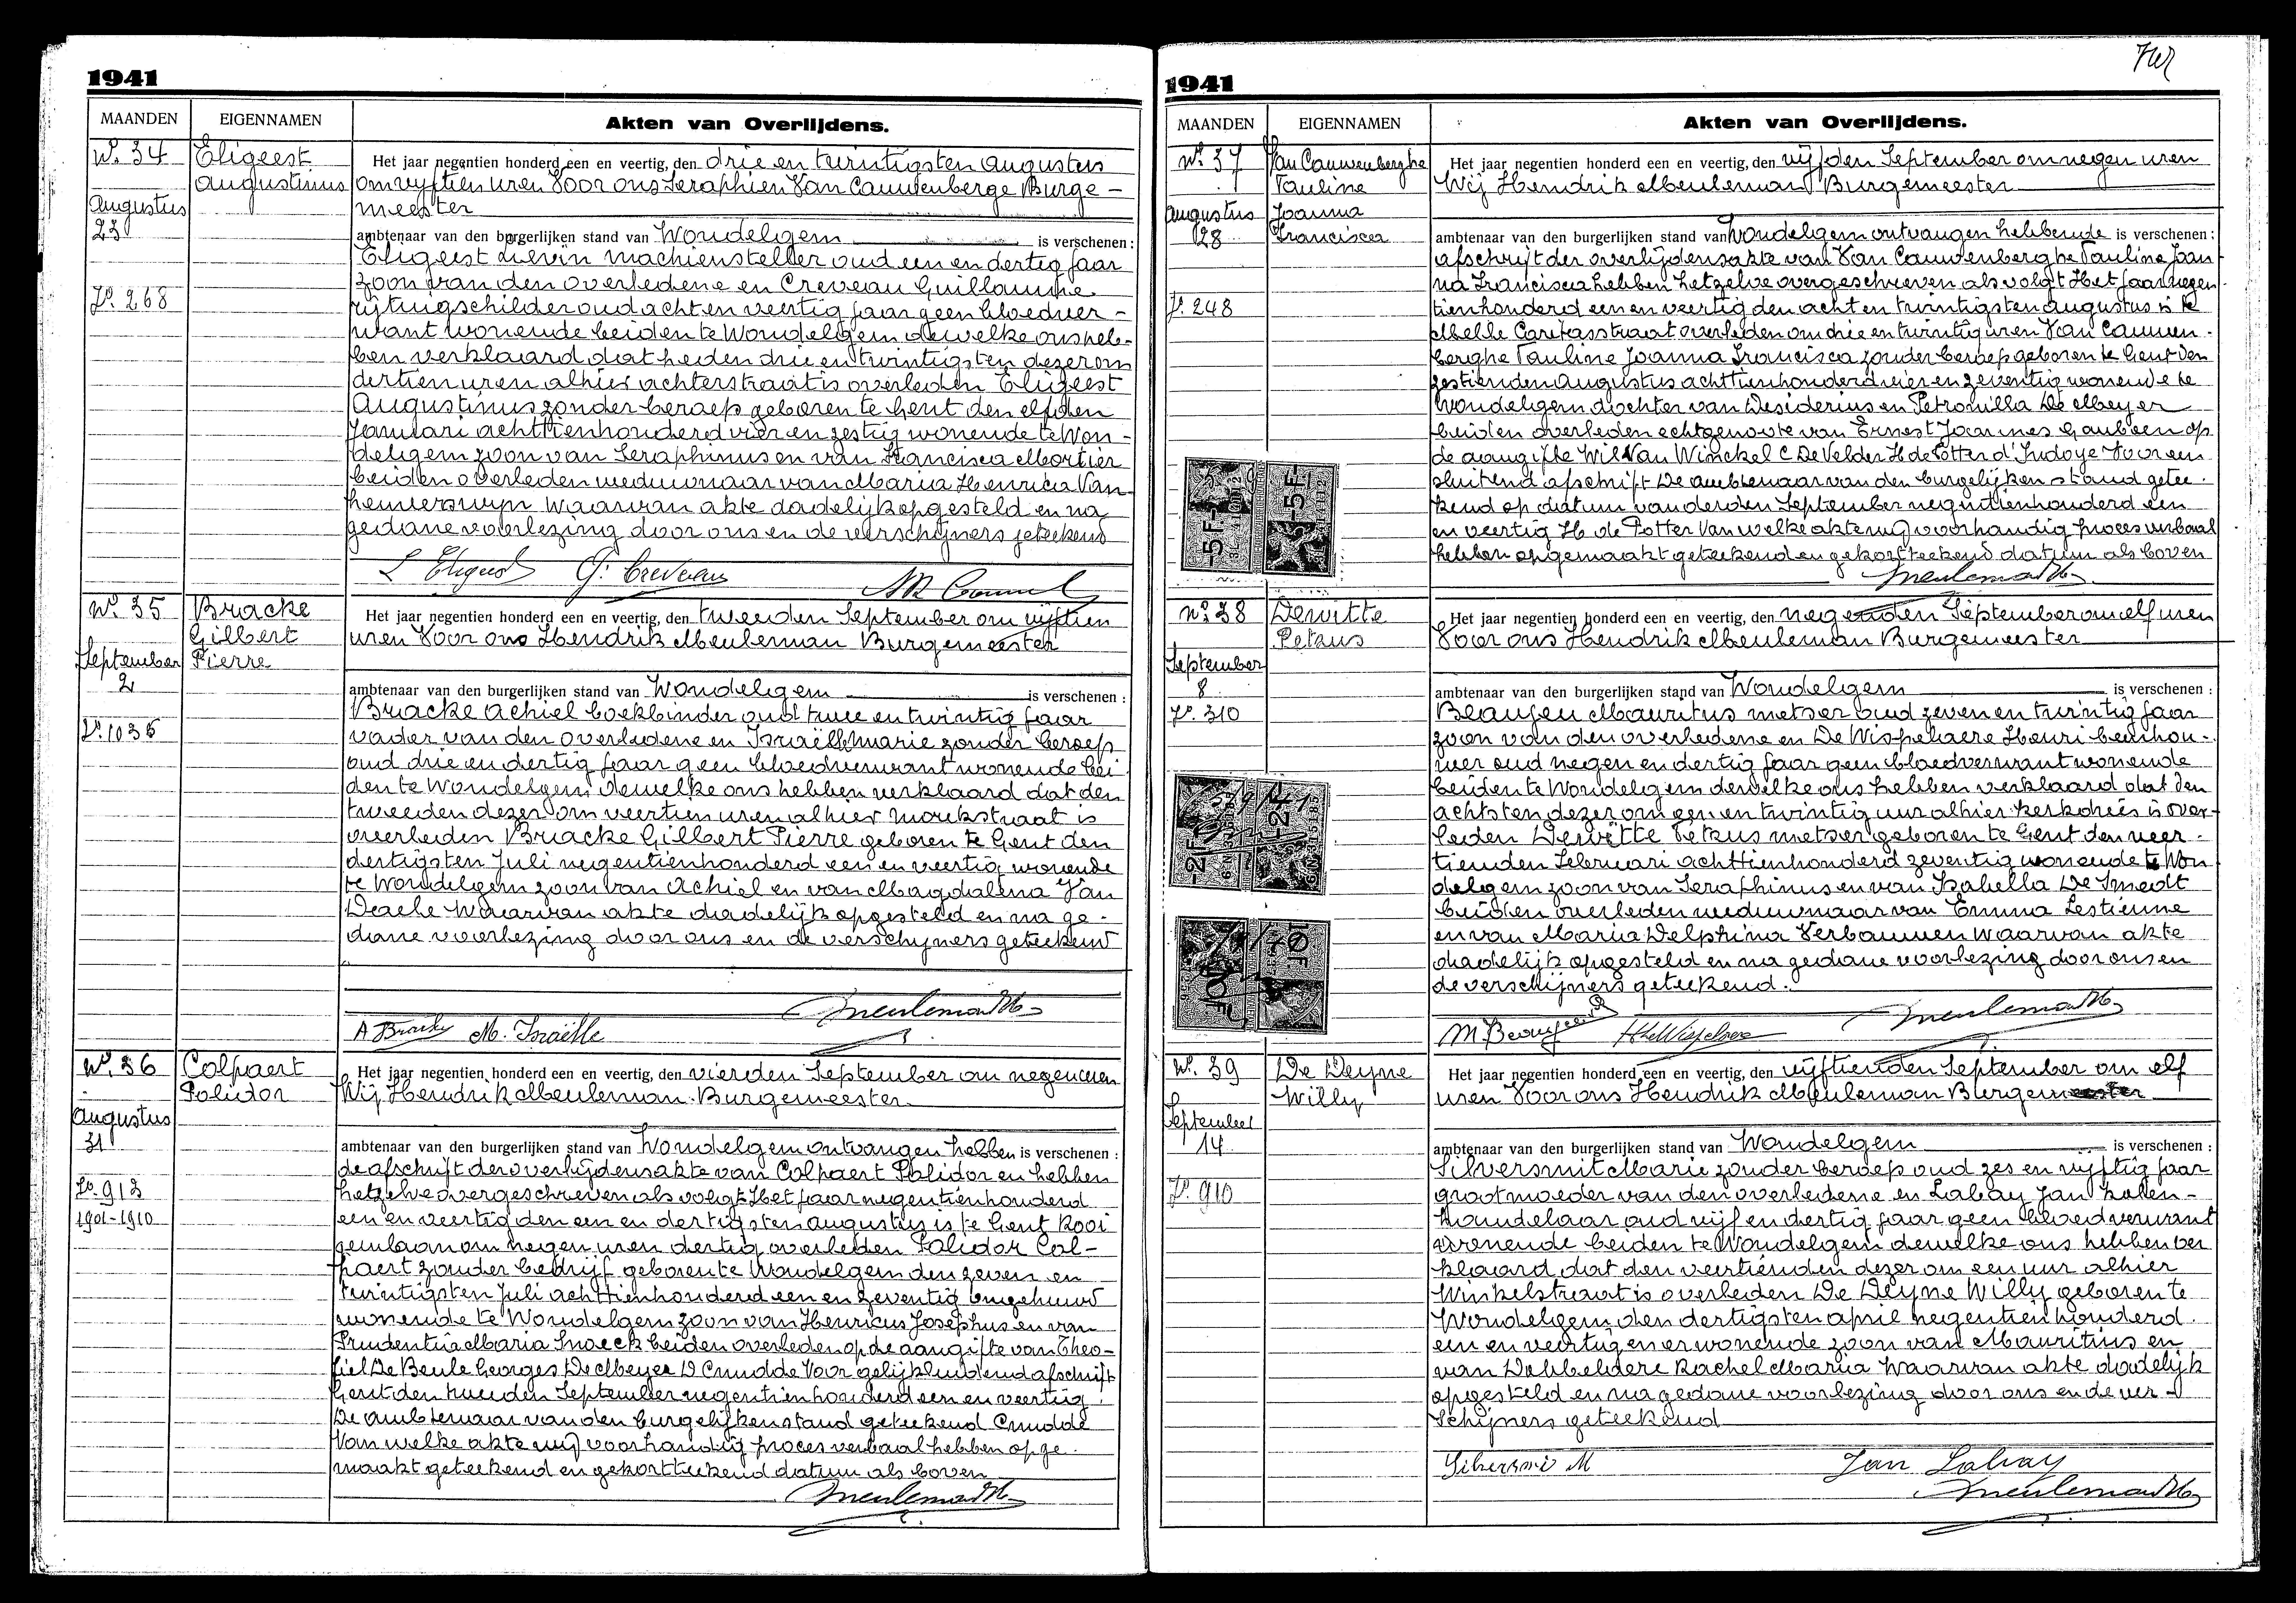 1941
MAANDEN EIGENNAMEN Akten van Overlijdens.
No. 34
Augustus
23
Fo. 268
Eligeest
Augustinus
Het jaar negentien honderd een en veertig, den drie en twintigsten Augustus
om vyftien uren Voor ons Seraphien Van Cauwenberge Burge-
meester
ambtenaar van den burgerlijken stand van Wondelgem is verschenen :
Eligeest Lievin machiensteller oud een en dertig jaar
zoon van den overledene en Creveau Guillaume
rijtuigschilder oud acht en veertig jaar geen bloedver-
want wonende beiden te Wondelgem dewelke ons heb-
ben verklaard dat heden drie en twintigsten dezer om
dertien uren alhier achterstraat is overleden Eligeest
Augustinus zonder beroep geboren te Gent den elfden
Januari achttienhonderd vier en zestig wonende te Won-
delgem zoon van Seraphinus en van Francisca Mortier
beiden overleden weduwnaar van Maria Henrica Van
hemerswyn Waarvan akte dadelijk opgesteld en na
gedane voorlezing door ons en de verschijners geteekend
No. 35
September
2
Fo. 1036
Bracke
Gilbert
Pierre
Het jaar negentien honderd een en veertig, den tweeden September om vijftien
uren Voor ons Hendrik Meuleman Burgemeester
ambtenaar van den burgerlijken stand van Wondelgem is verschenen :
Bracke Achiel boekbinder oud twee en twintig jaar
vader van den overledene en Israël Marie zonder beroep
oud drie en dertig jaar geen bloedverwant wonende bei
den te Wondelgem dewelke ons hebben verklaard dat den
tweeden dezer om veertien uren alhier Morekstraat is
overleden Bracke Gilbert Pierre geboren te Gent den
dertigsten Juli negentienhonderd een en veertig wonende
te Wondelgem zoon van Achiel en van Magdalena Van
Daele Waarvan akte dadelijk opgesteld en na ge-
dane voorlezing door ons en de verschijners geteekend
No. 36
Augustus
31
Fo. 913
1901-1910
Colpaert
Polidor
Het jaar negentien honderd een en veertig, den vierden September om negen uren
Wij Hendrik Meuleman Burgemeester
ambtenaar van den burgerlijken stand van Wondelgem ontvangen hebben is verschenen :
de afschrift der overlijdensakte van Colpaert Polidor en hebben
hetzelve overgeschreven als volgt Het jaar negentienhonderd
een en veertig den een en dertigsten augustus is te Gent Rooi
gemlaan om negen uren dertig overleden Polidor Col-
paert zonder bedrijf geboren te Wondelgem den zeven en
twintigsten Juli achttienhonderd een en zeventig ongehuwd
wonende te Wondelgem zoon van Henricus Josephus en van
Prudentia Maria Snoeck beiden overleden op de aangifte van Theo-
fiel De Beule Georges De Meyer D Cnudde Voor gelijkluidend afschrift
Gent den tweeden September negentienhonderd een en veertig
De ambtenaar van den burgelijken stand geteekend Cnudde
Van welke akte wij voorhandig proces verbaal hebben opge
maakt geteekend en gekortteekend datum als boven
1941
MAANDEN EIGENNAMEN Akten van Overlijdens.
No. 37
Augustus
28
Fo. 248
Van Cauwenberghe
Pauline
Joanna
Francisca
Het jaar negentien honderd een en veertig, den vijfden September om negen uren
Wij Hendrik Meuleman Burgemeester
ambtenaar van den burgerlijken stand van Wondelgem ontvangen hebbende is verschenen :
afschrift der overlijdensakte van Van Cauwenberghe Pauline Joan
na Francisca hebben hetzelve overgeschreven als volgt Het jaar negen
tienhonderd een en veertig den acht en twintigsten augustus is te
Melle Caritasstraat overleden om drie en twintig uren Van Cauwen-
berghe Pauline Joanna Francisca zonder beroep geboren te Gent den
zestienden Augustus achttienhonderd vier en zeventig wonende te
Wondelgem dochter van Desiderius en Petronilla De Meyer
beiden overleden echtgenoote van Ernest Joannes Gaubeen op
de aangifte Wil Van Winckel C De Velder H de Potter d'Indoye Voor een
sluitend afschrift De ambtenaar van den burgelijken stand getee-
kend op datum van derden September negentienhonderd een
en veertig H de Potter Van welke akte wij voorhandig proces verbaal
hebben opgemaakt geteekend en gekortteekend datum als boven
No. 38
September
8
Fo. 310
Dewitte
Petrus
Het jaar negentien honderd een en veertig, den negenden September om elf uren
Voor ons Hendrik Meuleman Burgemeester
ambtenaar van den burgerlijken stand van Wondelgem is verschenen :
Beaujeu Mauritus metser oud zeven en twintig jaar
zoon van den overledene en De Wispelaere Henri beenhou-
wer oud negen en dertig jaar geen bloedverwant wonende
beiden te Wondelgem dewelke ons hebben verklaard dat den
achtsten dezer om een en twintig uur alhier Kerkdries is over-
leden Dewitte Petrus metser geboren te Gent den veer-
tienden Februari achttienhonderd zeventig wonende te Won
delgem zoon van Seraphinus en van Isabella De Smedt
beiden overleden weduwnaar van Emma Lestienne
en van Maria Delphina Verbauwen Waarvan akte
dadelijk opgesteld en na gedane voorlezing door ons en
de verschijners geteekend.
No. 39
September
14
Fo. 910
De Deyne
Willy
Het jaar negentien honderd een en veertig, den vijftienden September om elf
uren Voor ons Hendrik Meuleman Burgemeester
ambtenaar van den burgerlijken stand van Wondelgem is verschenen :
Silversmit Marie zonder beroep oud zes en vijftig jaar
grootmoeder van den overledene en Labay Jan kolen-
handelaar oud vijf en dertig jaar geen bloedverwant
wonende beiden te Wondelgem dewelke ons hebben ver
klaard dat den veertienden dezer om een uur alhier
Winkelstraat is overleden De Deyne Willy geboren te
Wondelgem den dertigsten april negentienhonderd
een en veertig en er wonende zoon van Mauritius en
van Dobbelaere Rachel Maria Waarvan akte dadelijk
opgesteld en na gedane voorlezing door ons en de ver-
schijners geteekend
Jan Labay